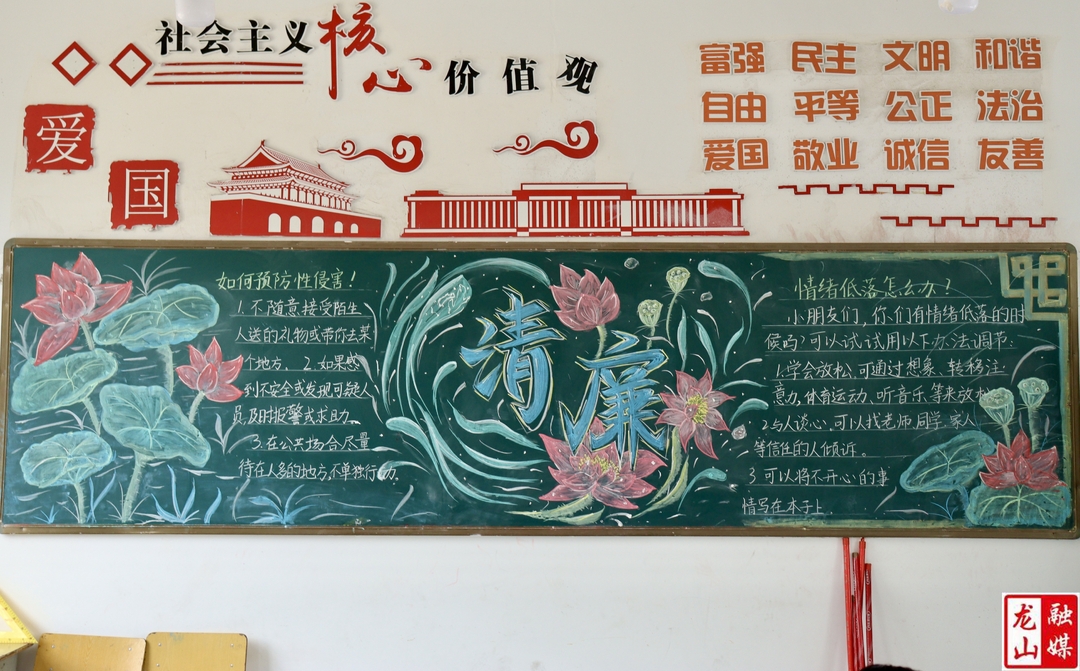 社会主义核心价值观
富强 民主 文明 和谐
自由 平等 公正 法治
爱国 敬业 诚信 友善
爱
国
如何预防性侵害！
1. 不随意接受陌生
人送的礼物或带你去某
个地方。2. 如果感
到不安全或发现可疑人
员,及时报警或求助。
3. 在公共场合尽量
待在人多的地方,不单独行动。
清廉
情绪低落怎么办？
小朋友们，你们有情绪低落的时
候吗？可以试试用以下办法调节:
1.学会放松,可通过想象、转移注
意力、体育运动、听音乐等来放松
2.与人谈心,可以找老师、同学、家人
等信任的人倾诉。
3 可以将不开心的事
情写在本子上.
龙山
融媒